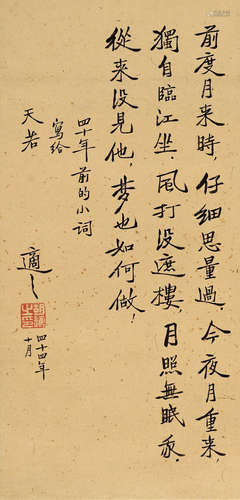 前度月来時，仔細思量過，今夜月重来，
獨自臨江坐，風打没遮樓，月照無眠我，
從来没見他，梦也如何做！
四十年前的小词
寫给
天若
適之
四十四年
十月